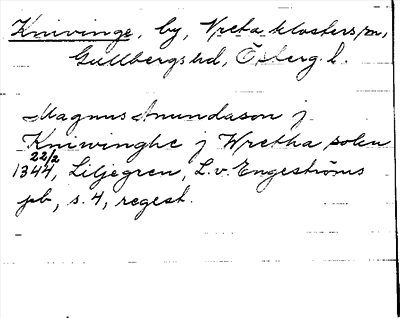 Knivinge, by, Vreta klosters sn,
Gullbergs hd, Österg. l.
Magnus Anundason j
Kniwinghe j Wretha sokn
22/2
1344, Liljegren, L. v. Engeströms
pb, s. 4, regest.